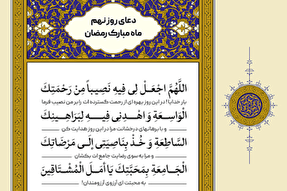 دعای روز نهم
ماه مبارک رمضان
اللَّهُمَّ اجْعَلْ لِی فِیهِ نَصِیباً مِنْ رَحْمَتِکَ
بار خدایا! در این روز بهره ای از رحمت گسترده ات را بر من نصیب فرما
الْوَاسِعَةِ وَ اهْدِنِی فِیهِ لِبَرَاهِینِکَ
و با برهانهای درخشانت مرا در این روز هدایت کن
السَّاطِعَةِ وَ خُذْ بِنَاصِیَتِی إِلَی مَرْضَاتِکَ
و مرا به سوی رضایت جامع ات بکشان
الْجَامِعَةِ بِمَحَبَّتِکَ یَا أَمَلَ الْمُشْتَاقِینَ
به محبتت ای آرزوی آرزومندان!